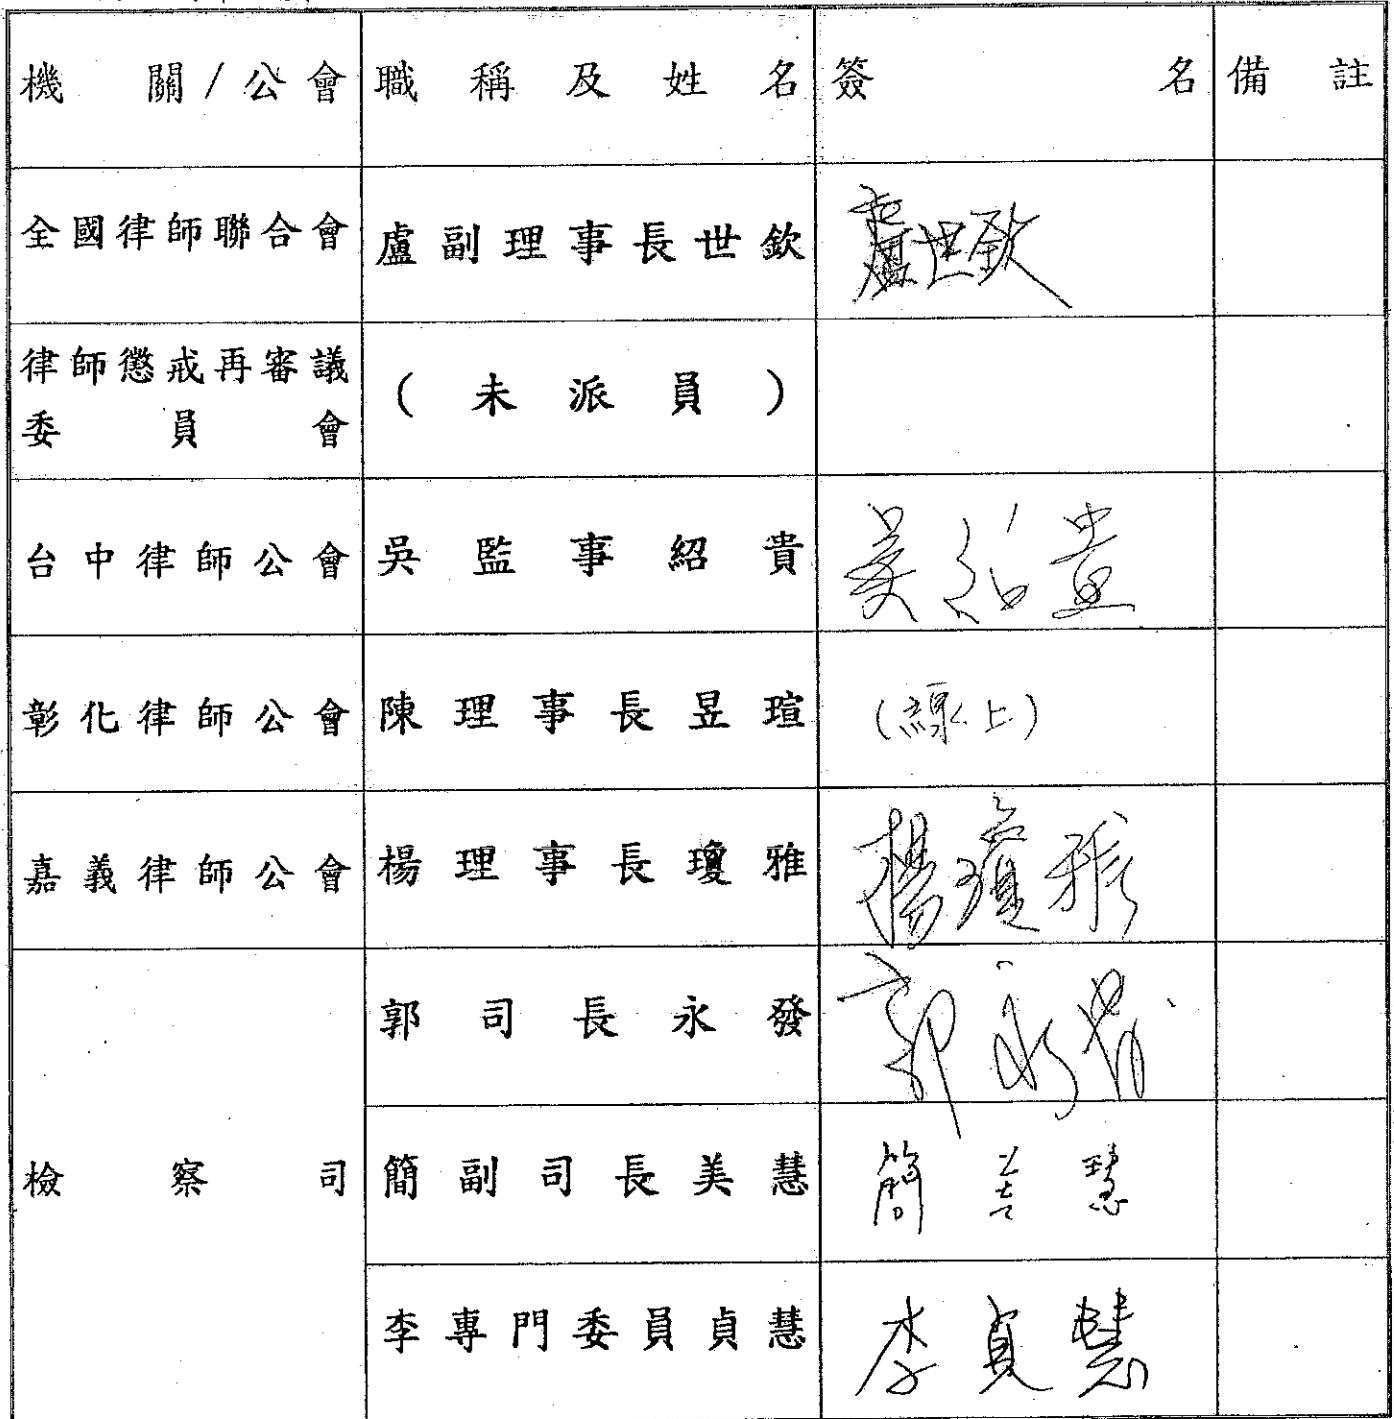 機關/公會 職稱及姓名 簽名 備註
全國律師聯合會 盧副理事長世欽 盧世欽
律師懲戒再審議
委員會 (未派員)
台中律師公會 吳監事紹貴 吳紹貴
彰化律師公會 陳理事長昱瑄 (線上)
嘉義律師公會 楊理事長瓊雅 楊瓊雅
郭司長永發 郭永發
檢察司 簡副司長美慧 簡美慧
李專門委員貞慧 李貞慧